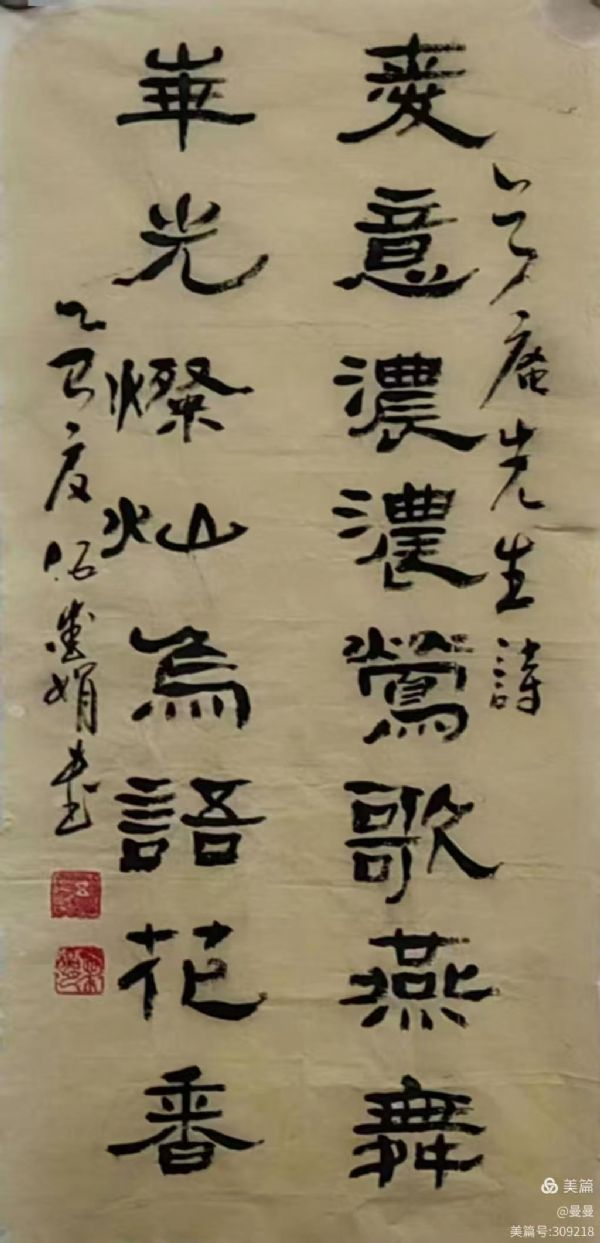 庵先生詩
意濃濃鶯歌燕舞
華光燦灿鳥語花香
乙巳夏娟書
美篇
@曼曼
美篇号:309218